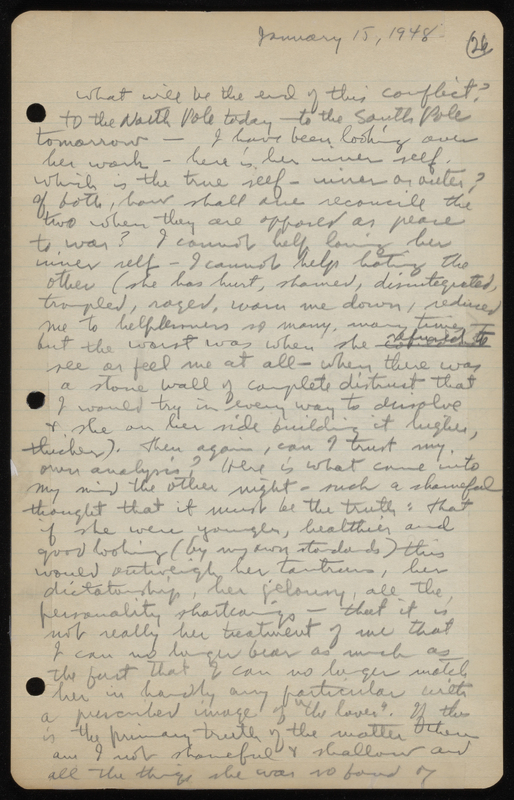 January 15, 1948
26
What will be the end of this conflict?
To the North Pole today – to the South Pole
tomorrow – I have been looking over
her work – here is her inner self.
Which is the true self – inner or outer?
If both, how shall one reconcile the
two when they are opposed as peace
to war? I cannot help loving her
inner self – I cannot help hating the
other (she has hurt, shamed, disintegrated,
trampled, raged, worn me down, reduced
me to helplessness so many, many times,
but the worst was when she refused to
see or feel me at all – when there was
a stone wall of complete distrust that
I would try in every way to dissolve
& she on her side building it higher,
thicker). Then again, can I trust my
own analysis? Here is what came into
my mind the other night – such a shameful
thought that it must be the truth: that
if she were younger, healthier and
good looking (by my own standards) this
would outweigh her tantrums, her
dictatorship, her jelousy, all the
personality shortcomings – that it is
not really her treatment of me that
I can no longer bear as much as
the fact that I can no longer match
her in hardly any particular with
a prescribed image of "the lover". If this
is the primary truth of the matter then
am I not shameful & shallow and
all the things she was so fond of